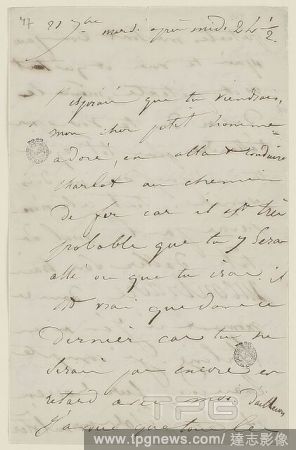 21 7bre mardi après midi 2h ½
J'espérais que tu viendrais,
mon cher petit homme
adoré, en allant conduire
Charlot au chemin
de fer car il est très
probable que tu y seras
allé ou que tu iras. il
est vrai que dans ce
dernier cas tu ne
serais pas encore en
retard avec moi d'ailleurs
TPG
www.tpgnews.com／達志影像